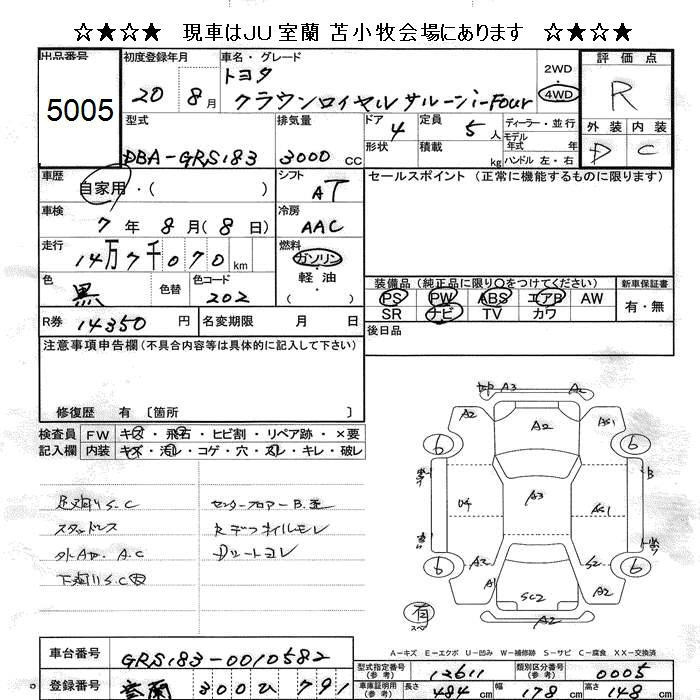 ☆★☆★ 現車はJU室蘭 苫小牧会場にあります ☆★☆★
出品番号 5005
初度登録年月 20 8月
車名・グレード トヨタ
クラウンロイヤルサルーンi-Four
2WD 4WD
評価点 R
外装 D 内装 C
型式 DBA-GRS183
排気量 3000 CC
ドア 4 形状
定員 5人 積載 kg
ディーラー・並行
モデル年式 年式
ハンドル 左・右
車歴 自家用・( )
シフト AT
セールスポイント(正常に機能するものに限ります)
車検 7年8月(8日)
冷房 AAC
走行 14万7千070km
燃料 ガソリン・軽油 ( )
色 黒 色替 色コード 202
装備品(純正品に限り〇をつけてください) 新車保証書
PS PW ABS エアB AW 有・無
SR ナビ TV カワ
R券 14350円 名変期限 月 日
後日品
注意事項申告欄(不具合内容等は具体的に記入して下さい)
修復歴 有〔箇所 〕
検査員 FW キズ・飛石・ヒビ割・リペア跡・×要
記入欄 内装 キズ・汚れ・コゲ・穴・スレ・キレ・破レ
足廻りS.C
スタッドレス
外A.C
下廻りS.C
センターフロアーB
Rデフオイルモレ
Dシートヨレ
A3 A2
A2 A2 AS1
6 6
B
U4 A3 AS1
A3 S2
6 6
A1 SC2 A2
A2
有
スペ
A-キズ E-エクボ U-凹み W-補修跡 S-サビ C-腐食 XX-交換済
車台番号 GRS183-0010582
型式指定番号(参考) 12611 類別区分番号(参考) 0005
登録番号 室蘭 300 ひ 791
車庫証明用(参考) 長さ 484 cm 幅 178 cm 高さ 148 cm